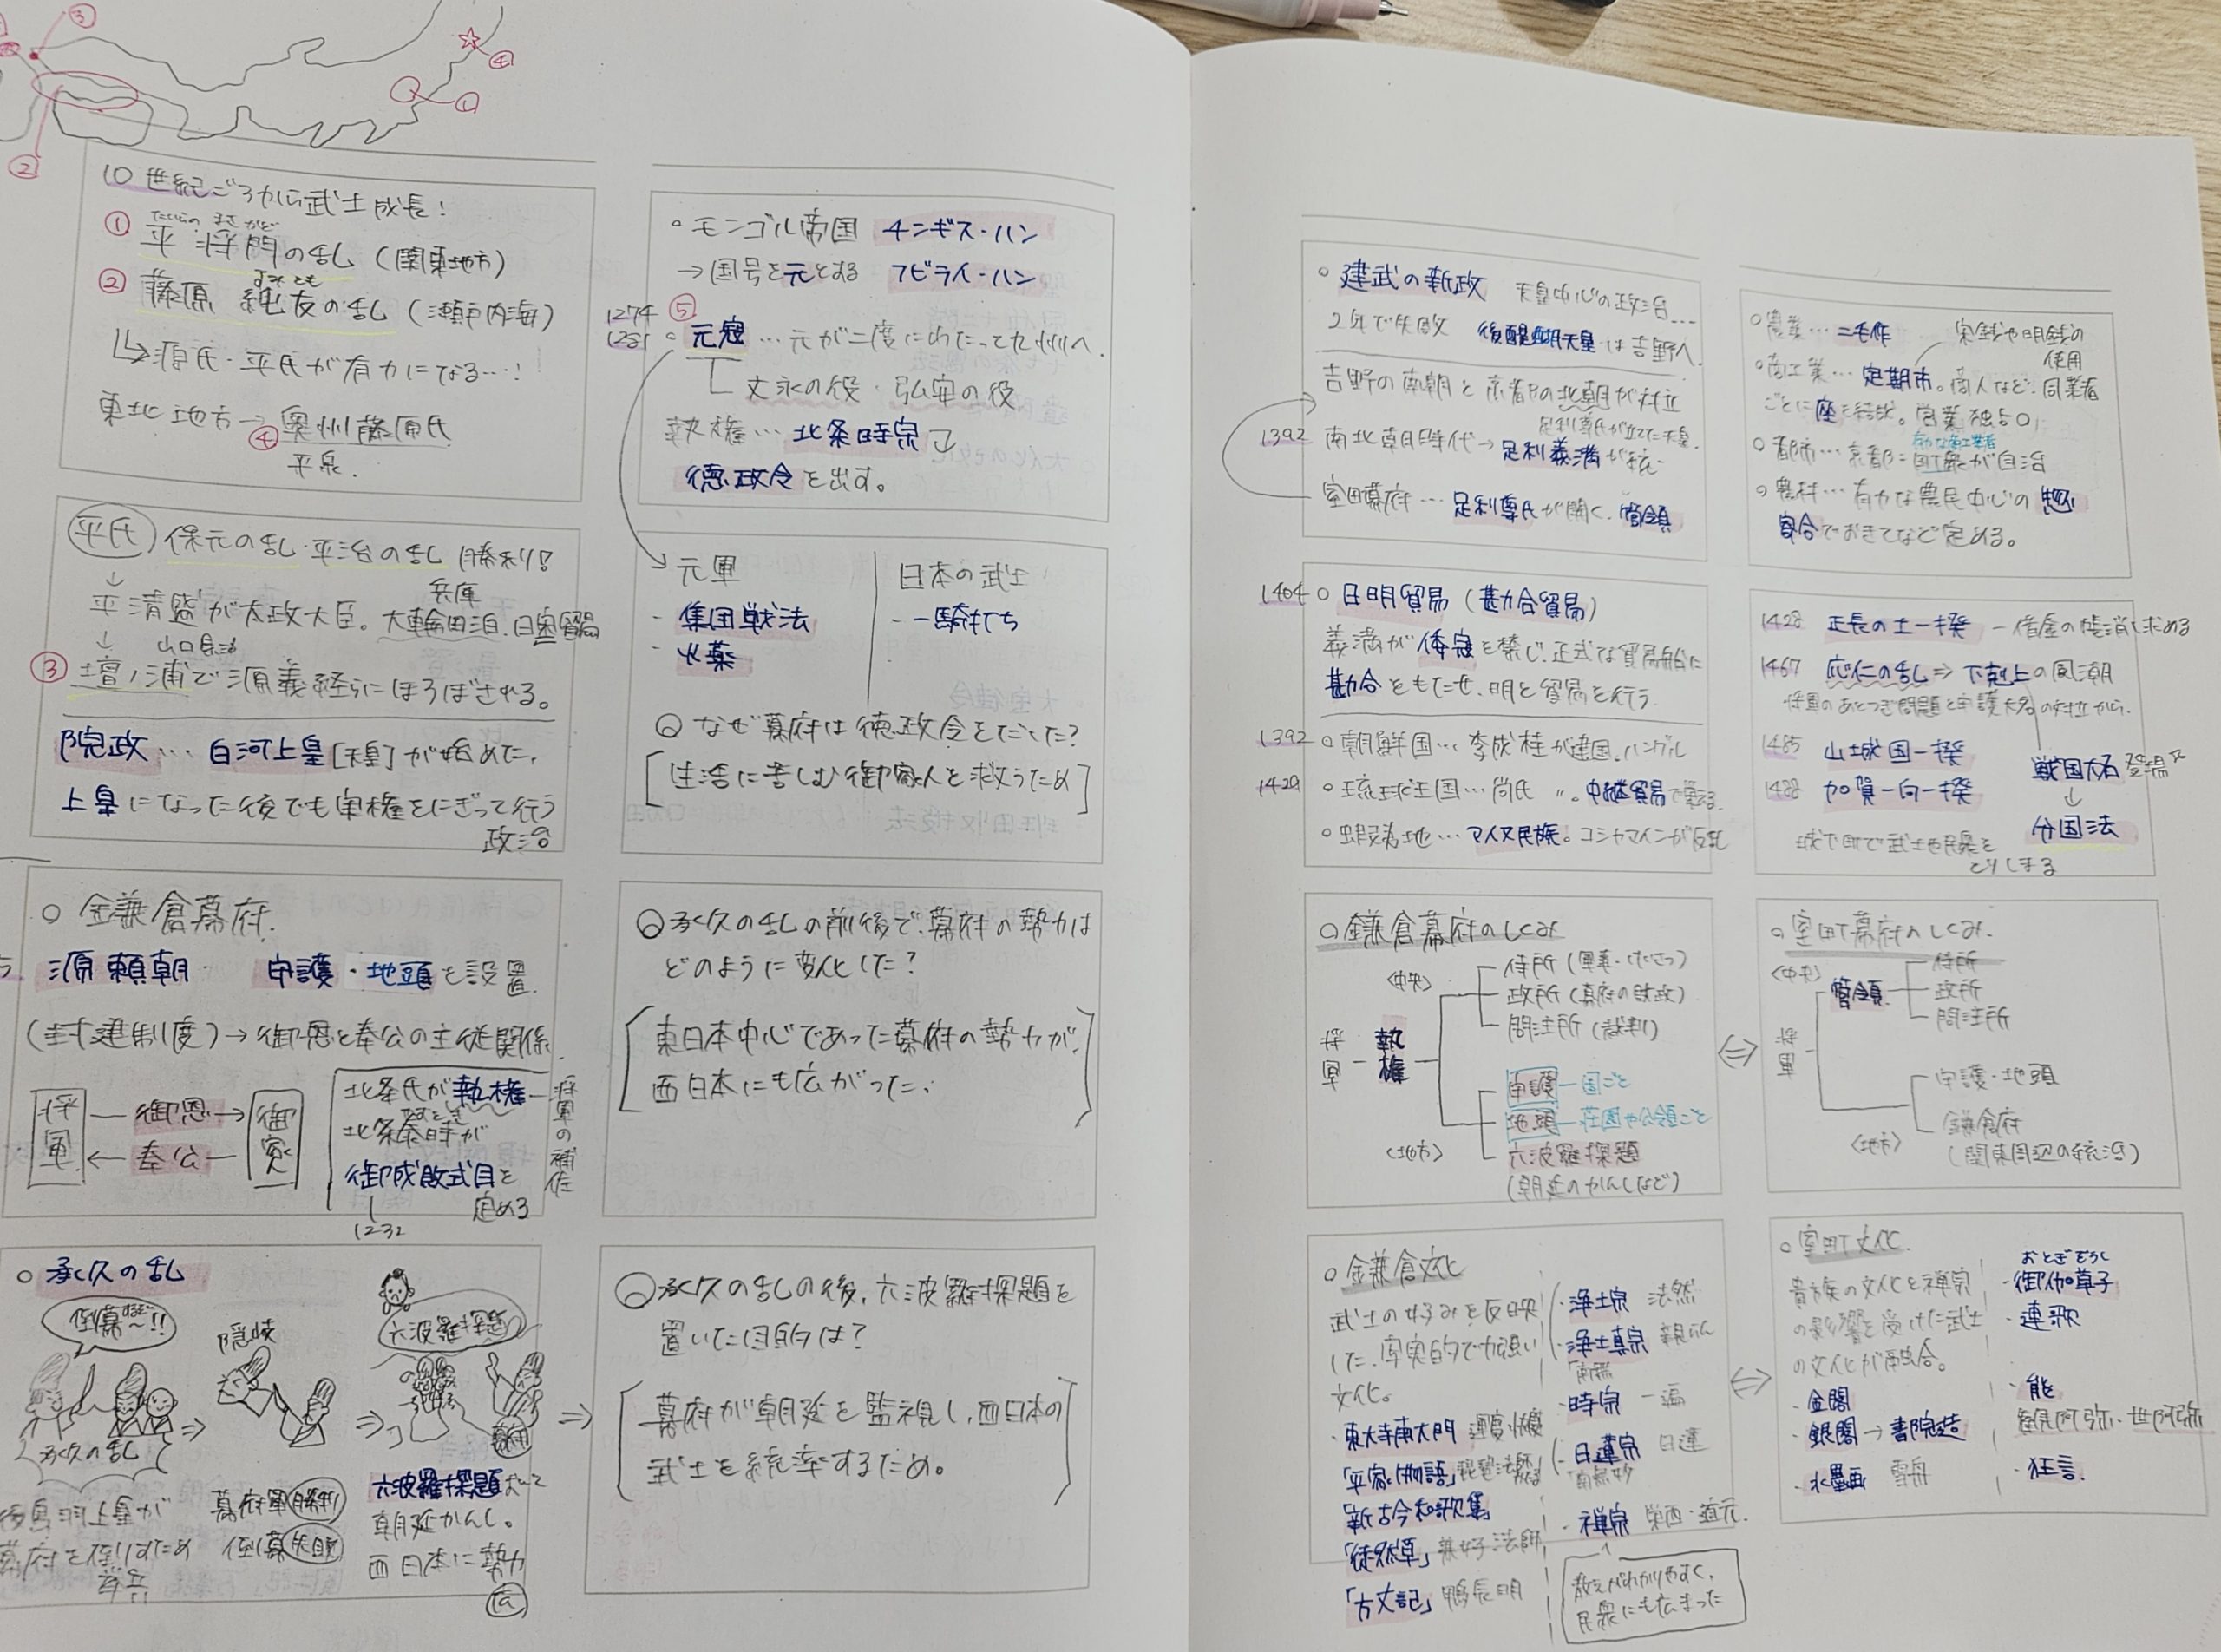 ③
②
④
①
10世紀ごろから武士成長！
たいらの まさ かど
① 平 将門の乱（関東地方）
すみ とも
② 藤原 純友の乱（瀬戸内海）
↳源氏・平氏が有力になる…！
東北地方→奥州藤原氏
④
平泉.
平氏 保元の乱・平治の乱 勝利！
↓
兵庫
平清盛が太政大臣。大輪田泊. 日宋貿易
↓
山口県
③ 壇ノ浦で源義経らにほろぼされる。
院政… 白河上皇[天皇]が始めた,
上皇になった後でも実権をにぎって行う
政治
○ 鎌倉幕府.
源頼朝 守護・地頭を設置.
(封建制度)→御恩と奉公の主従関係.
将軍 御恩→ 御家人
← 奉公
北条氏が執権 将軍の補佐
やすとき
北条泰時が
御成敗式目を
定める
1232
○ 承久の乱
倒幕するぞ～!!
承久の乱
隠岐
六波羅探題
幕府
後鳥羽上皇が
幕府を倒すため
挙兵
幕府軍勝利
倒幕失敗
六波羅探題おいて
朝廷かんし。
西日本に勢力
○モンゴル帝国 チンギス・ハン
→国号を元とする フビライ・ハン
1274 ⑤
1281 ○元寇…元が二度にわたって九州へ.
文永の役・弘安の役
執権… 北条時宗
徳政令を出す。
元軍
- 集団戦法
- 火薬
日本の武士
- 一騎打ち
Q なぜ幕府は徳政令をだした?
[生活に苦しむ御家人を救うため]
Q 承久の乱の前後で、幕府の勢力は
どのように変化した?
[東日本中心であった幕府の勢力が,
西日本にも広がった.]
Q 承久の乱の後, 六波羅探題を
置いた目的は?
[幕府が朝廷を監視し, 西日本の
武士を統率するため。]
○建武の新政 天皇中心の政治…
2年で失敗 後醍醐天皇は吉野へ.
吉野の南朝と京都の北朝が対立
足利尊氏が立てた天皇.
1392 南北朝時代→足利義満が統一
室町幕府… 足利尊氏が開く. 管領
1404 ○日明貿易（勘合貿易）
義満が倭寇を禁じ, 正式な貿易船に
勘合をもたせ, 明と貿易を行う.
1392 ○朝鮮国… 李成桂が建国. ハングル
1429 ○琉球王国… 尚氏 〃。中継貿易で栄える.
○蝦夷地… アイヌ民族。コシャマインが反乱
○鎌倉幕府のしくみ
<中央>
将軍 - 執権
侍所（軍事・けいさつ）
政所（幕府の財政）
問注所（裁判）
守護 - 国ごと
地頭 - 荘園や公領ごと
六波羅探題
(朝廷のかんしなど)
<地方>
○鎌倉文化
武士の好みを反映
した, 写実的で力強い
文化。
・東大寺南大門 運慶快慶
「平家物語」琵琶法師
「新古今和歌集」
「徒然草」兼好法師
「方丈記」鴨長明
・浄土宗 法然
・浄土真宗 親らん
・時宗 一遍
・日蓮宗 日蓮
・禅宗 栄西・道元.
教えがわかりやすく,
民衆にも広まった
○農業… 二毛作
宋銭や明銭の
使用
○商工業… 定期市。商人など, 同業者
ごとに座を結成。営業独占
有力な商工業者
○都市… 京都=町衆が自治
○農村… 有力な農民中心の惣
寄合でおきてなど定める。
1428 正長の土一揆 - 借金の帳消し求める
1467 応仁の乱⇒下剋上の風潮
将軍のあとつぎ問題と守護大名の対立から.
1485 山城国一揆
1488 加賀一向一揆
戦国大名 登場
↓
分国法
城下町で武士や民衆を
とりしまる
○室町幕府のしくみ.
<中央>
将軍
管領
侍所
政所
問注所
守護・地頭
鎌倉府
(関東周辺の統治)
<地方>
○室町文化.
貴族の文化と禅宗
の影響を受けた武士
の文化が融合。
・金閣
・銀閣→書院造
・水墨画 雪舟
おとぎぞうし
・御伽草子
・連歌
・能
観阿弥・世阿弥
・狂言.